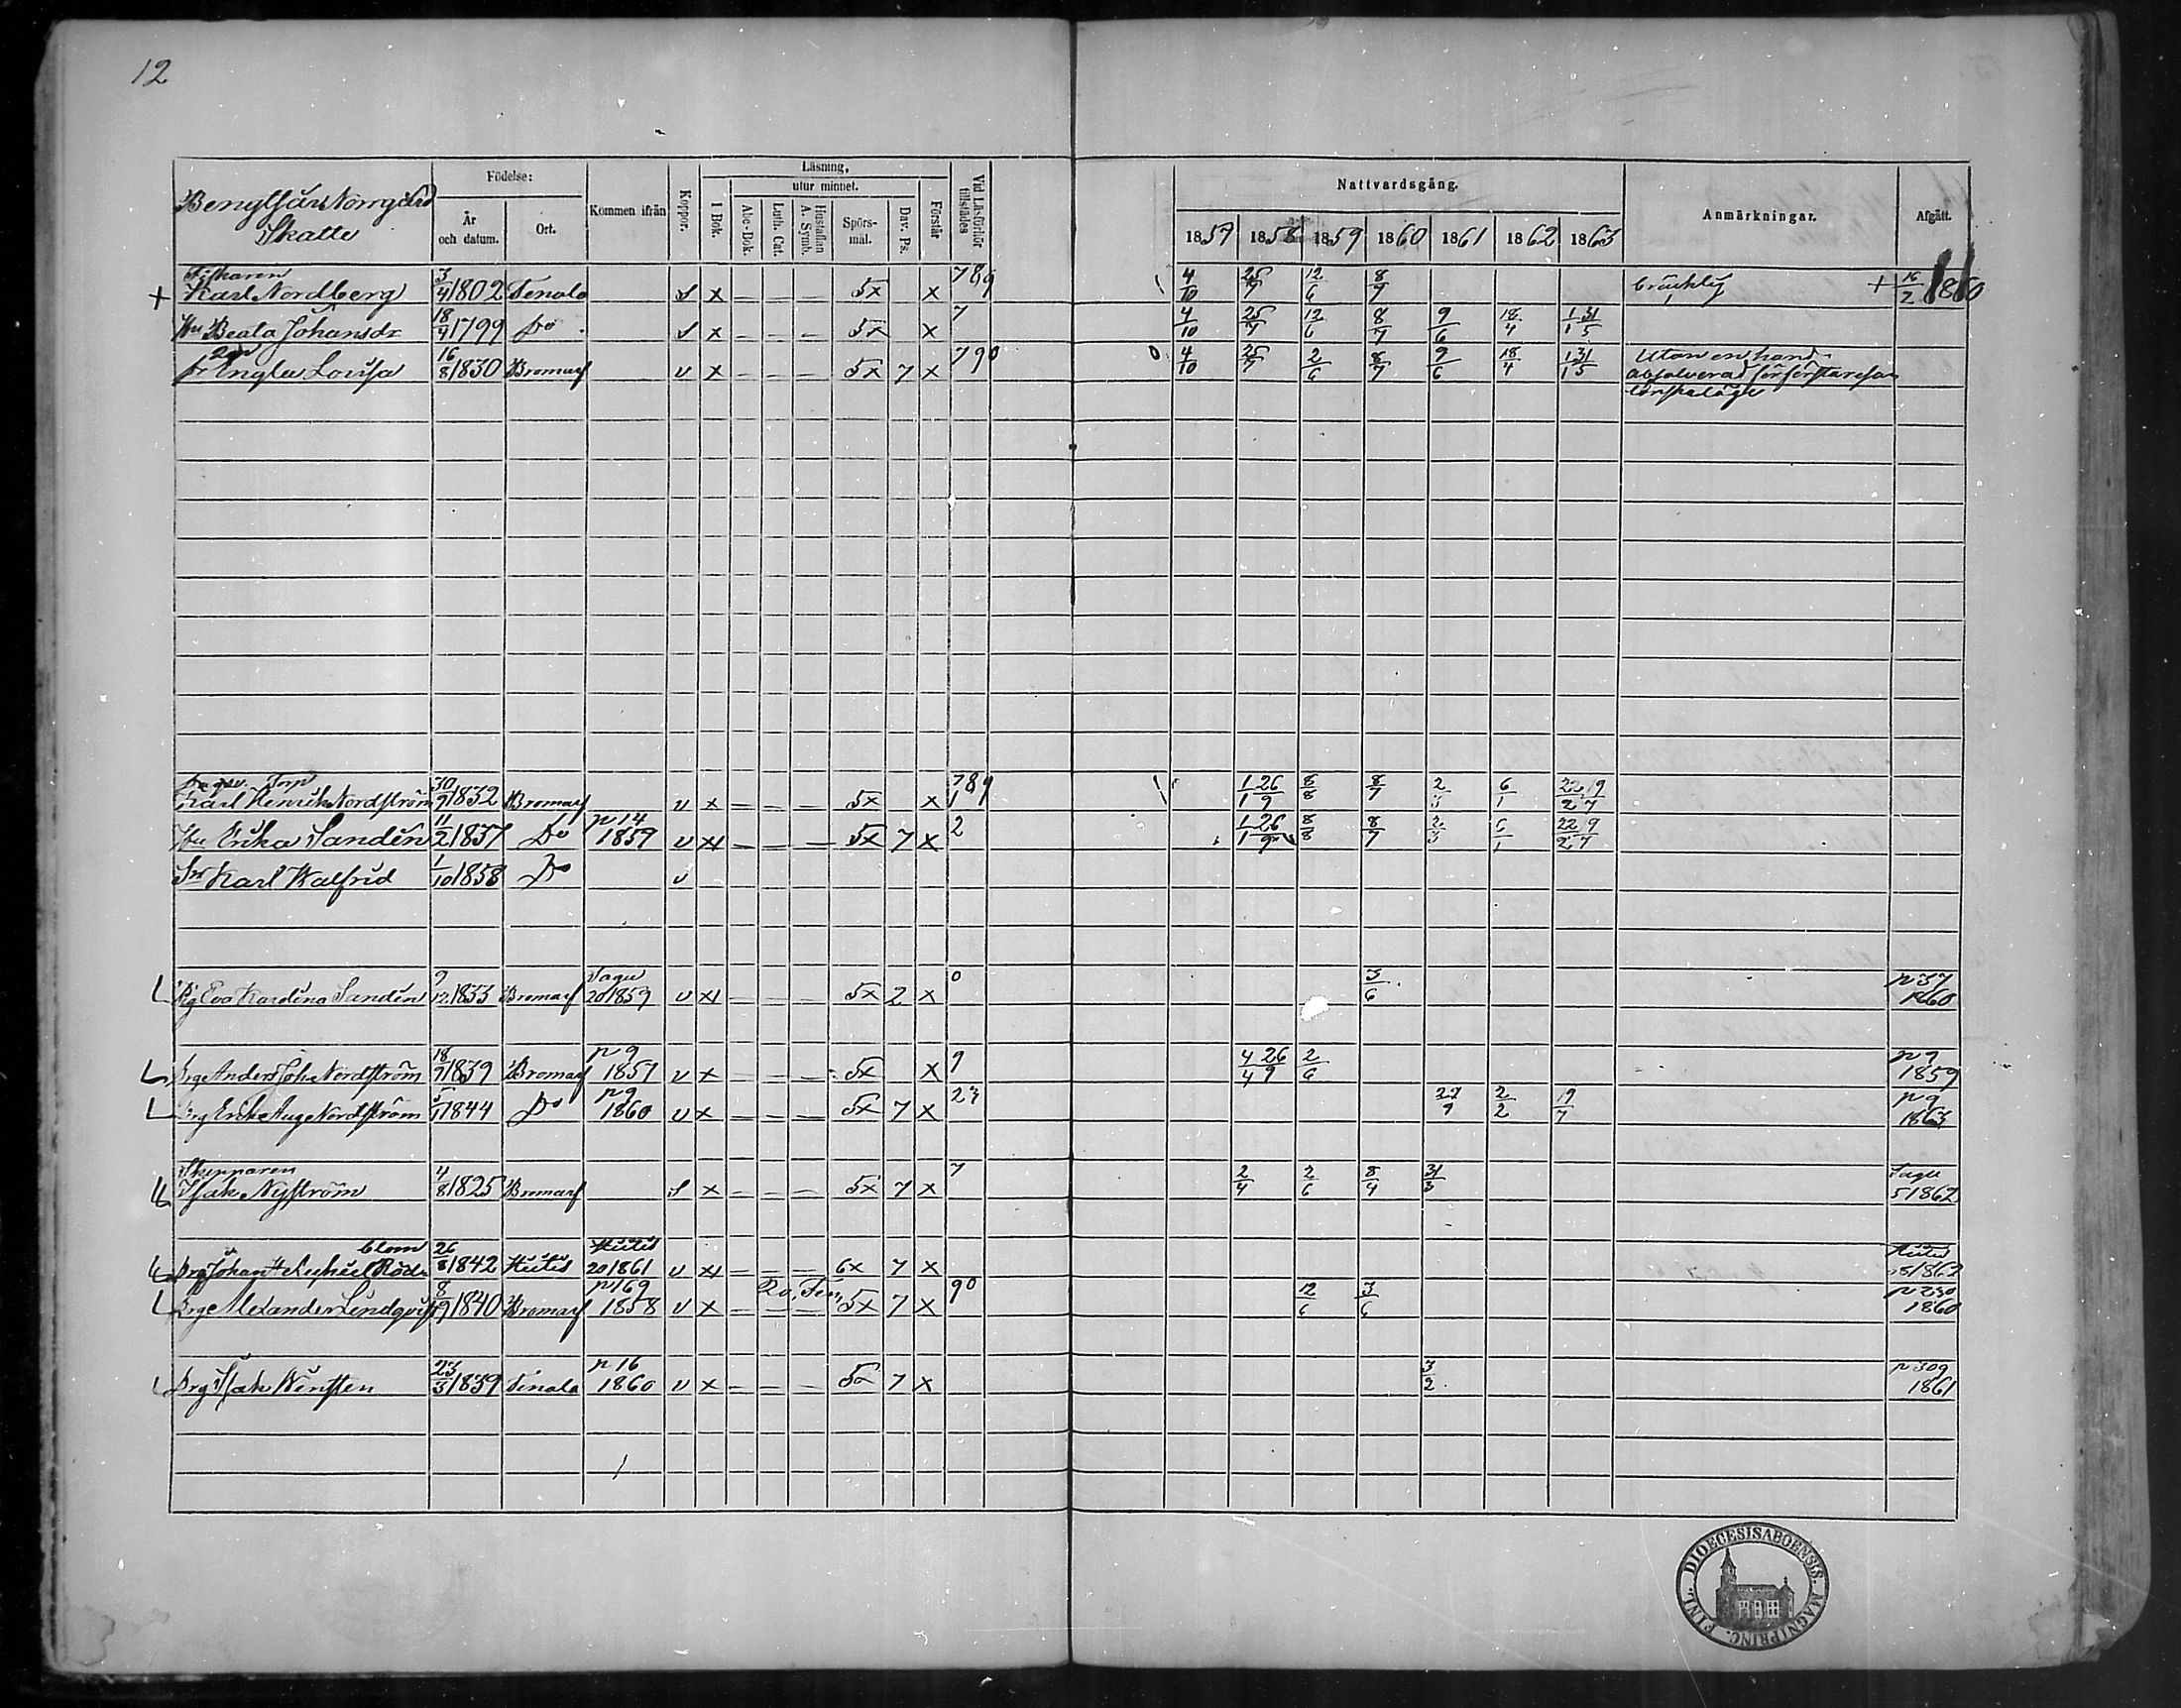 12
Bengtsår Norrgård
Skatte
Födelse:
År och datum.
Ort.
Kommen ifrån
Koppor.
Läsning,
I Bok.
utur minnet.
Abc-Bok.
Luth. Cat.
Hustaflan A. Symb.
Spörs-mål.
Dav. Ps.
Förstår
Vid Läsförhör tillstädes
Nattvardsgång.
1857 1858 1859 1860 1861 1862 1863
Anmärkningar.
Afgått.
Fiskaren
+ Karl Nordberg 3/4 1802 Tenala s x – – – 5x x 789 4/10 25/7 12/6 8/7 bräcklig + 16/2 1860
Hu Beata Johansdr 18/4 1799 Do s x – – – 5x x 7 4/10 25/7 12/6 8/7 9/6 18/4 1/1 31/5
Dr Engla Lovisa 16/8 1830 Bromarf v x – – – 5x 7 x 790 0 4/10 25/7 2/6 8/7 9/6 18/4 1/1 31/5 Utan en hand
absolverad för första resan
lönskaläge
Torp
Karl Henrik Nordström 30/9 1832 Bromarf v x – – – 5x x 789 1/1 26/9 8/8 8/7 2/3 6/1 22/2 19/7
Hu Erika Sandén 11/2 1837 Do p 14 1859 v x – – – 5x 7 x 2 1/1 26/9 8/8 8/7 2/3 6/1 22/2 9/7
Sn Karl Walfrid 1/10 1858 Do v
L Pig Eva Karolina Sandén 9/12 1833 Bromarf Sagu 20 1859 v x – – – 5x 2 x 0 3/6 p 37 1860
L Drg Anders Joh. Nordström 18/9 1839 Bromarf p 9 1857 v x – – – 5x x 9 4/4 26/9 2/6 p 9 1859
L Drg Erik Aug Nordström 1844 Do p 9 1860 v x – – – 5x 7 x 23 22/9 2/2 19/7 p 9 1863
Skepparen
Isak Nyström 4/8 1825 Bromarf s x – – – 5x 7 x 7 2/4 2/6 8/4 31/3 Sagu 5 1862
Blom
Drg Johan 26/8 1842 Hitis Hitis 20 1861 v x – – – 6x 7 x Hitis 1862
L Drg Alexander Lindqvist 8/9 1840 Bromarf p 169 1858 v x – 5x 7 x 90 12/6 3/6 p 230 1860
Drg Isak Wensten 23/3 1839 Tenala p 16 1860 v x – – – 5x 7 x 3/2 p 309 1861
FINL. DIOECESIS ABOENSIS. MAGNI PRINC.